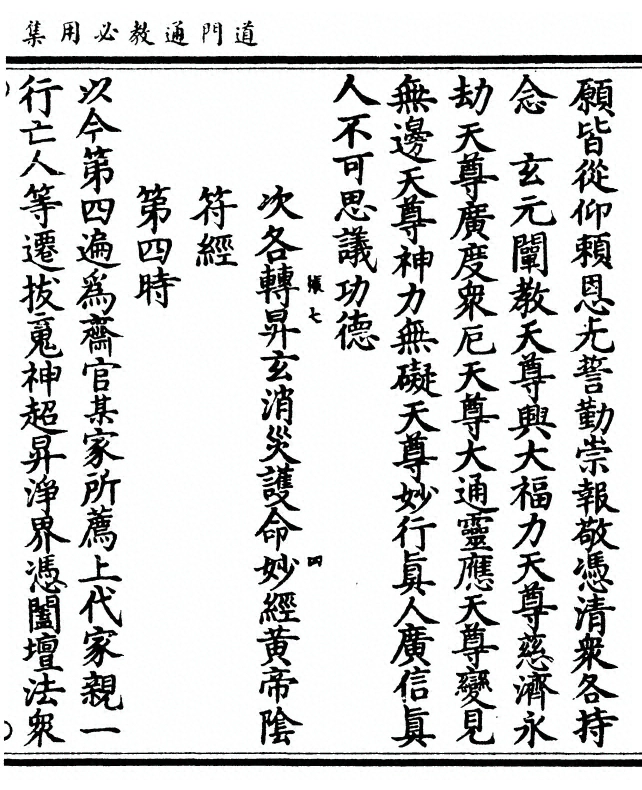 道門通教必用集
願皆從仰賴恩光誓勤崇報敬憑清衆各持
念　玄元闡教天尊興大福力天尊慈濟永
劫天尊廣度衆厄天尊大通靈應天尊變見
無邊天尊神力無礙天尊妙行眞人廣信眞
人不可思議功德
次各轉昇玄消災護命妙經黃帝陰
符經
第四時
以今第四遍爲齋官某家所薦上代家親一
行亡人等遷拔䰟神超昇淨界憑闔壇法衆
七
四